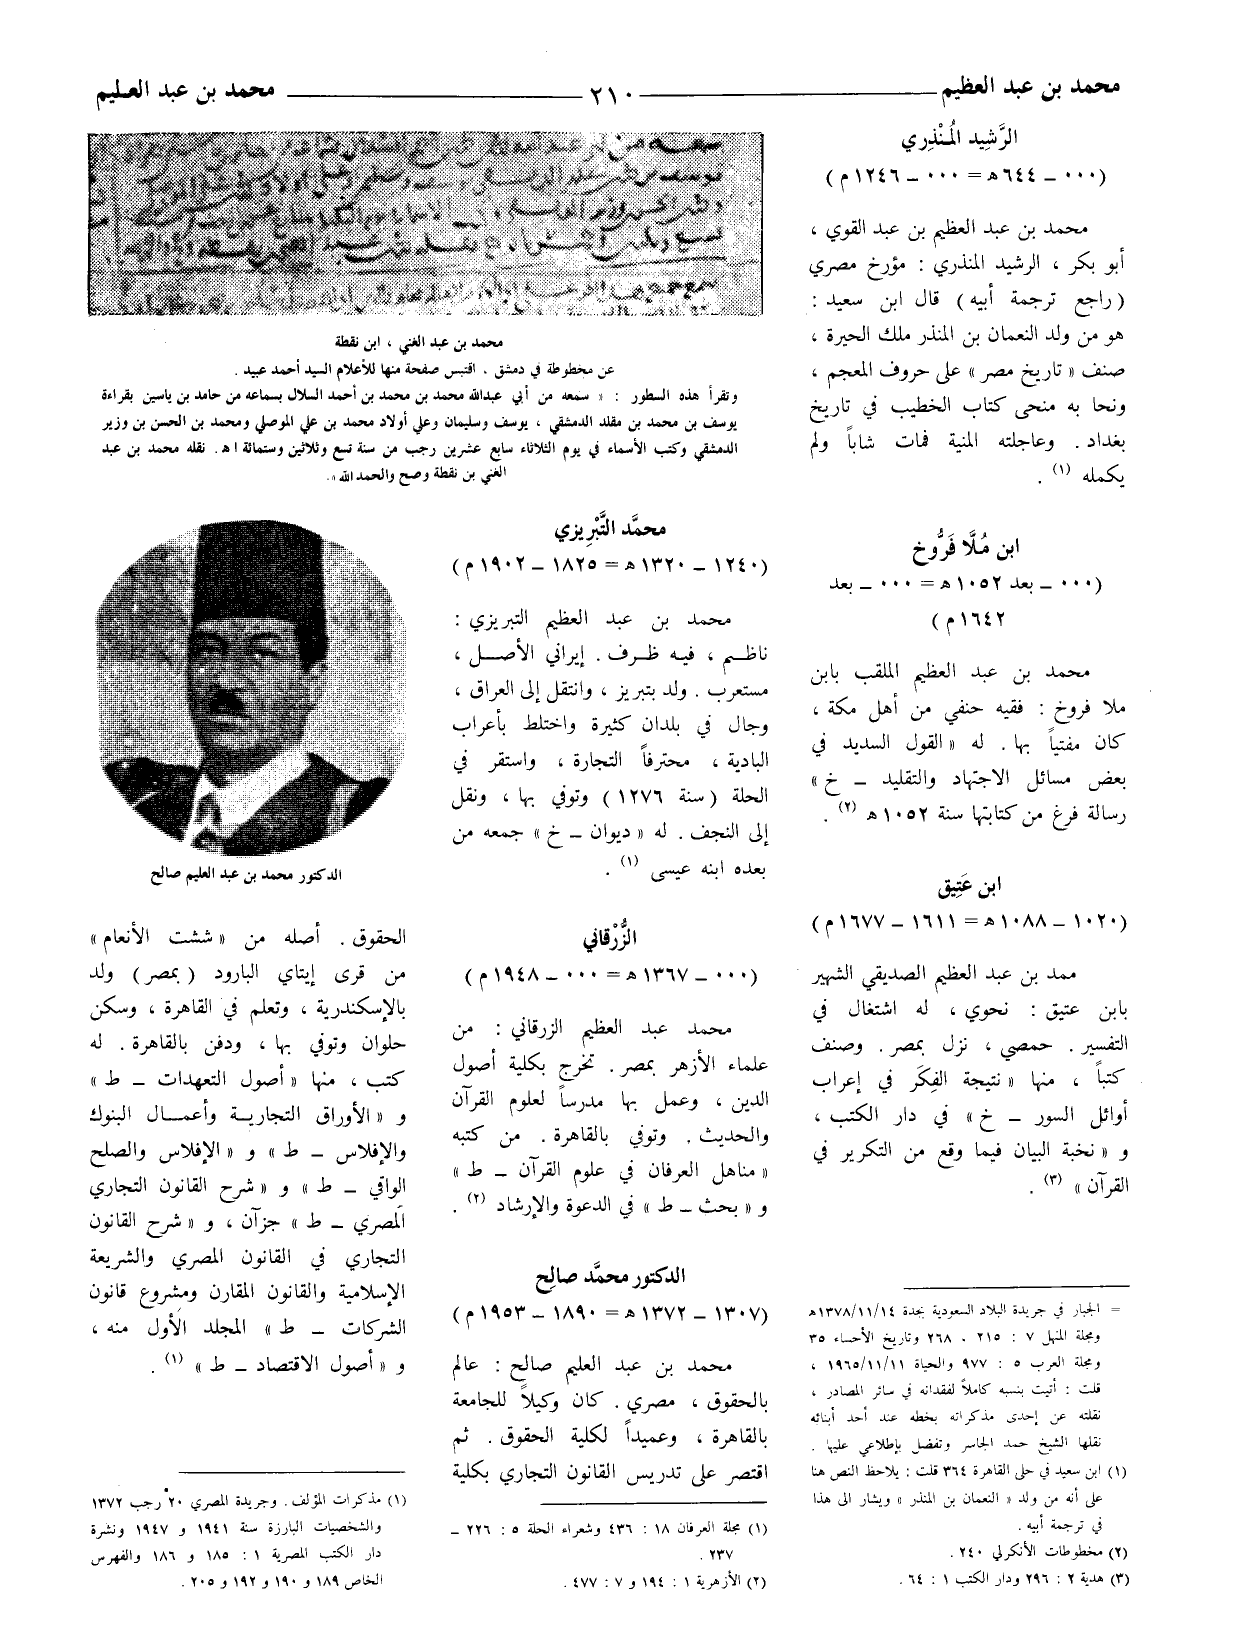 محمد بن عبد العظيم ــــ ٢١٠ ــــ محمد بن عبد العـليم
الرَّشِيد المُنْذِري
(٠٠٠ ــ ٦٤٤ هـ = ٠٠٠ ــ ١٢٤٦ م)
محمد بن عبد العظيم بن عبد القوي ،
أبو بكر ، الرشيد المنذري : مؤرخ مصري
(راجع ترجمة أبيه) قال ابن سعيد :
هو من ولد النعمان بن المنذر ملك الحيرة ،
صنف « تاريخ مصر » على حروف المعجم ،
ونحا به منحى كتاب الخطيب في تاريخ
بغداد . وعاجلته المنية فمات شاباً ولم
يكمله (١) .
ابن مُلَّا فَرُّوخ
(٠٠٠ ــ بعد ١٠٥٢ هـ = ٠٠٠ ــ بعد
١٦٤٢ م)
محمد بن عبد العظيم الملقب بابن
ملا فروخ : فقيه حنفي من أهل مكة ،
كان مفتياً بها . له « القول السديد في
بعض مسائل الاجتهاد والتقليد ــ خ »
رسالة فرغ من كتابتها سنة ١٠٥٢ هـ (٢) .
ابن عَتِيق
(١٠٢٠ ــ ١٠٨٨ هـ = ١٦١١ ــ ١٦٧٧ م)
ممد بن عبد العظيم الصديقي الشهير
بابن عتيق : نحوي ، له اشتغال في
التفسير . حمصي ، نزل بمصر . وصنف
كتباً ، منها « نتيجة الفِكَر في إعراب
أوائل السور ــ خ » في دار الكتب ،
و « نخبة البيان فيما وقع من التكرير في
القرآن » (٣) .
= الجبار في جريدة البلاد السعودية بجدة ١٣٧٨/١١/١٤هـ
ومجلة المنهل ٧ : ٢١٥ ، ٢٦٨ وتاريخ الأحساء ٣٥
ومجلة العرب ٥ : ٩٧٧ والحياة ١٩٦٥/١١/١١ ،
قلت : أتيت بنسبه كاملاً لفقدانه في سائر المصادر ،
نقلته عن إحدى مذكراته بخطه عند أحد أبنائه
نقلها الشيخ حمد الجاسر وتفضل بإطلاعي عليها .
(١) ابن سعيد في حلى القاهرة ٣٦٤ قلت : يلاحظ النص هنا
على أنه من ولد « النعمان بن المنذر » ويشار الى هذا
في ترجمة أبيه .
(٢) مخطوطات الأنكرلي ٢٤٠ .
(٣) هدية ٢ : ٢٩٦ ودار الكتب ١ : ٦٤ .
محمد بن عبد الغني ، ابن نقطة
عن مخطوطة في دمشق ، اقتبس صفحة منها للأعلام السيد أحمد عبيد .
وتقرأ هذه السطور : « سمعه من أبي عبدالله محمد بن محمد بن أحمد السلال بسماعه من حامد بن ياسين بقراءة
يوسف بن محمد بن مقلد الدمشقي ، يوسف وسليمان وعلي أولاد محمد بن علي الموصلي ومحمد بن الحسن بن وزير
الدمشقي وكتب الأسماء في يوم الثلاثاء سابع عشرين رجب من سنة تسع وثلاثين وستمائة اهـ . نقله محمد بن عبد
الغني بن نقطة وصح والحمد الله ».
محمَّد التَّبْرِيزي
(١٢٤٠ ــ ١٣٢٠ هـ = ١٨٢٥ ــ ١٩٠٢ م)
محمد بن عبد العظيم التبريزي :
ناظـم ، فيه ظـرف . إيراني الأصـل ،
مستعرب . ولد بتبريز ، وانتقل إلى العراق ،
وجال في بلدان كثيرة واختلط بأعراب
البادية ، محترفاً التجارة ، واستقر في
الحلة (سنة ١٢٧٦) وتوفي بها ، ونقل
إلى النجف . له « ديوان ــ خ » جمعه من
بعده ابنه عيسى (١) .
الزُّرْقاني
(٠٠٠ ــ ١٣٦٧ هـ = ٠٠٠ ــ ١٩٤٨ م)
محمد عبد العظيم الزرقاني : من
علماء الأزهر بمصر . تخرج بكلية أصول
الدين ، وعمل بها مدرساً لعلوم القرآن
والحديث . وتوفي بالقاهرة . من كتبه
« مناهل العرفان في علوم القرآن ــ ط »
و « بحث ــ ط » في الدعوة والإرشاد (٢) .
الدكتور محمَّد صالِح
(١٣٠٧ ــ ١٣٧٢ هـ = ١٨٩٠ ــ ١٩٥٣ م)
محمد بن عبد العليم صالح : عالم
بالحقوق ، مصري . كان وكيلاً للجامعة
بالقاهرة ، وعميداً لكلية الحقوق . ثم
اقتصر على تدريس القانون التجاري بكلية
(١) مجلة العرفان ١٨ : ٤٣٦ وشعراء الحلة ٥ : ٢٢٦ ــ
٢٣٧ .
(٢) الأزهرية ١ : ١٩٤ و ٧ : ٤٧٧ .
الدكتور محمد بن عبد العليم صالح
الحقوق . أصله من « ششت الأنعام »
من قرى إيتاي البارود (بمصر) ولد
بالإسكندرية ، وتعلم في القاهرة ، وسكن
حلوان وتوفي بها ، ودفن بالقاهرة . له
كتب ، منها « أصول التعهدات ــ ط »
و « الأوراق التجاريـة وأعمـال البنوك
والإفلاس ــ ط » و « الإفلاس والصلح
الواقي ــ ط » و « شرح القانون التجاري
المصري ــ ط » جزآن ، و « شرح القانون
التجاري في القانون المصري والشريعة
الإسلامية والقانون المقارن ومشروع قانون
الشركات ــ ط » المجلد الأول منه ،
و « أصول الاقتصاد ــ ط » (١) .
(١) مذكرات المؤلف . وجريدة المصري ٢٠ رجب ١٣٧٢
والشخصيات البارزة سنة ١٩٤١ و ١٩٤٧ ونشرة
دار الكتب المصرية ١ : ١٨٥ و ١٨٦ والفهرس
الخاص ١٨٩ و ١٩٠ و ١٩٢ و ٢٠٥ .